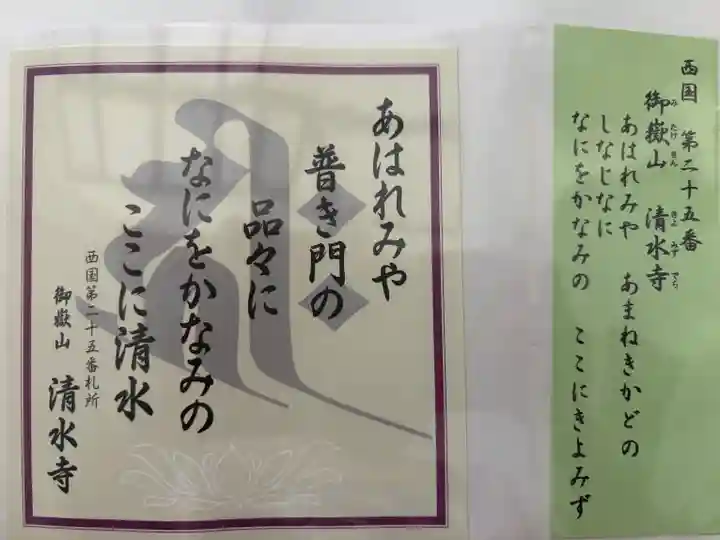 西国 第二十五番
御嶽山 清水寺
みたけさん きよみずでら
あはれみや あまねきかどの
しなじなに
なにをかなみの ここにきよみず
あはれみや
普き門の
品々に
なにをかなみの
ここに清水
西国第二十五番札所
御嶽山 清水寺